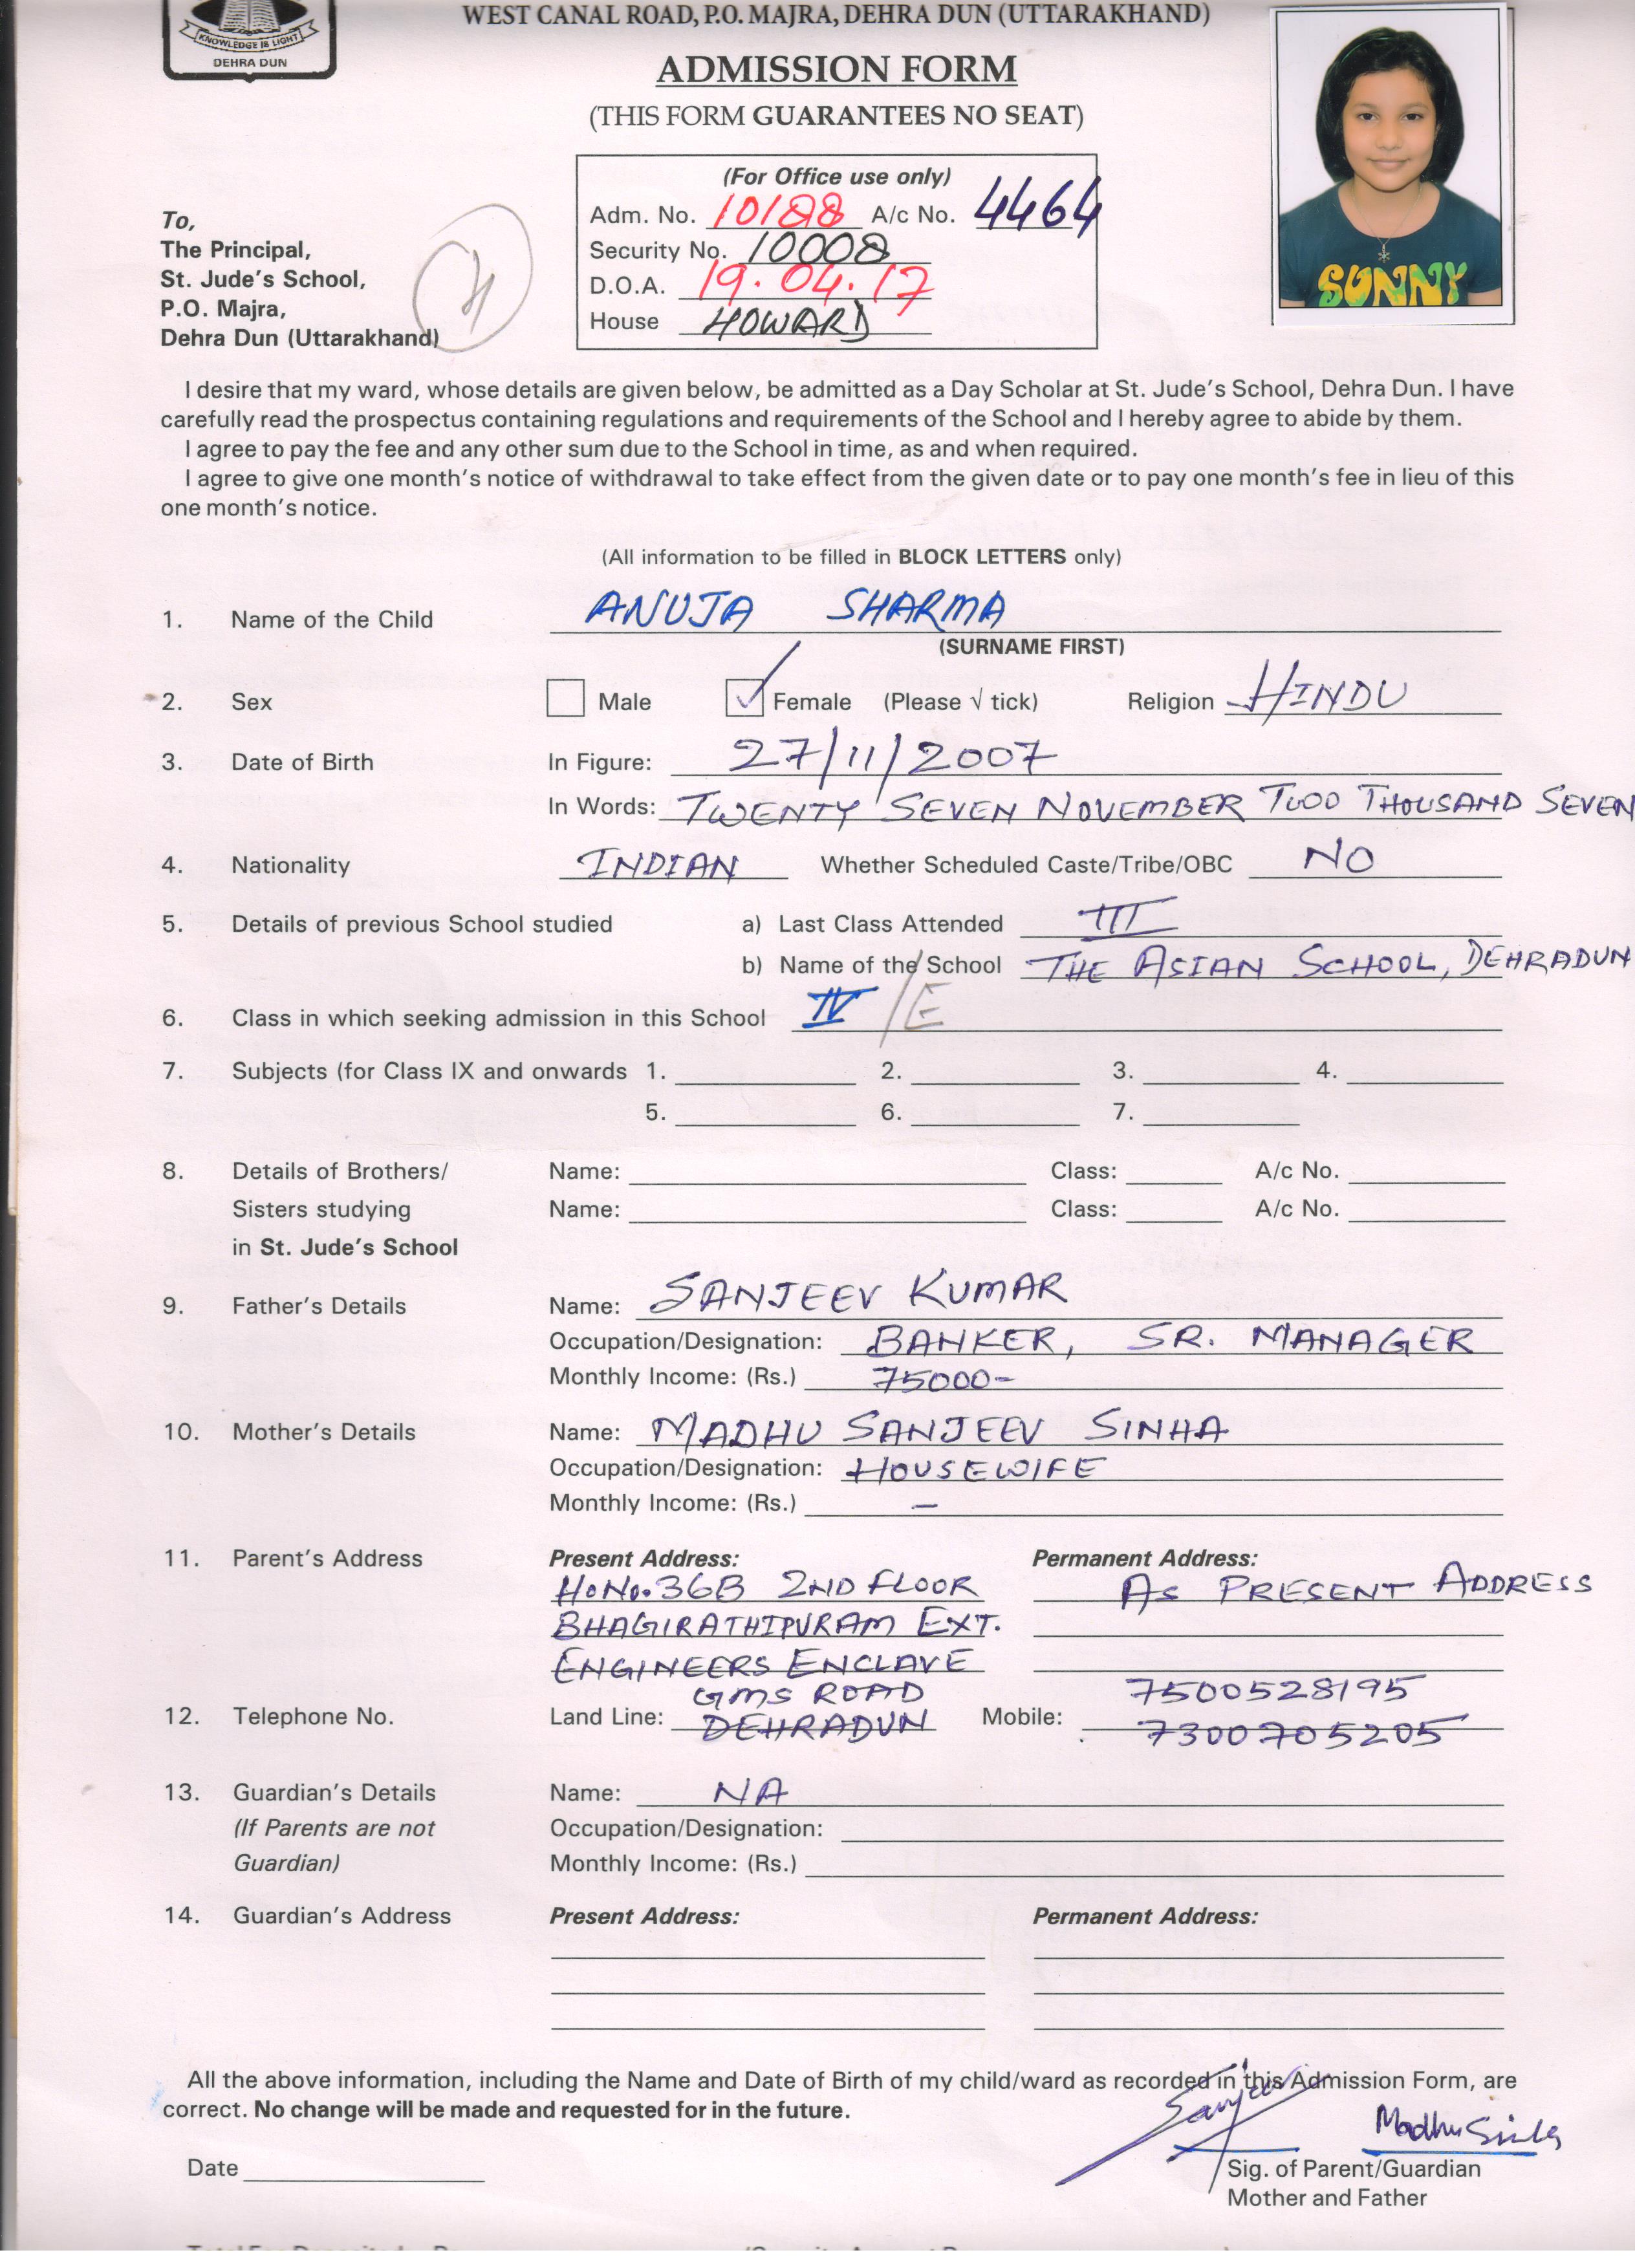 KNOWLEDGE IS LIGHT
DEHRA DUN
WEST CANAL ROAD, P.O. MAJRA, DEHRA DUN (UTTARAKHAND)
ADMISSION FORM
(THIS FORM GUARANTEES NO SEAT)
(For Office use only)
Adm. No. 10188 A/c No. 4464
Security No. 10008
D.O.A. 19.04.17
House HOWARD
SUNNY
To,
The Principal,
St. Jude's School,
P.O. Majra,
Dehra Dun (Uttarakhand)
I desire that my ward, whose details are given below, be admitted as a Day Scholar at St. Jude's School, Dehra Dun. I have
carefully read the prospectus containing regulations and requirements of the School and I hereby agree to abide by them.
I agree to pay the fee and any other sum due to the School in time, as and when required.
I agree to give one month's notice of withdrawal to take effect from the given date or to pay one month's fee in lieu of this
one month's notice.
(All information to be filled in BLOCK LETTERS only)
1. Name of the Child ANUJA SHARMA
(SURNAME FIRST)
2. Sex Male ✓ Female (Please √ tick) Religion HINDU
3. Date of Birth In Figure: 27/11/2007
In Words: TWENTY SEVEN NOVEMBER TWOO THOUSAND SEVEN
4. Nationality INDIAN Whether Scheduled Caste/Tribe/OBC NO
5. Details of previous School studied a) Last Class Attended III
b) Name of the School THE ASIAN SCHOOL, DEHRADUN
6. Class in which seeking admission in this School IV /E
7. Subjects (for Class IX and onwards 1. 2. 3. 4.
5. 6. 7.
8. Details of Brothers/ Name: Class: A/c No.
Sisters studying Name: Class: A/c No.
in St. Jude's School
9. Father's Details Name: SANJEEV KUMAR
Occupation/Designation: BANKER, SR. MANAGER
Monthly Income: (Rs.) 75000-
10. Mother's Details Name: MADHU SANJEEV SINHA
Occupation/Designation: HOUSEWIFE
Monthly Income: (Rs.) -
11. Parent's Address Present Address: Permanent Address:
H.No. 36B 2ND FLOOR AS PRESENT ADDRESS
BHAGIRATHIPURAM EXT.
ENGINEERS ENCLAVE
GMS ROAD 7500528195
12. Telephone No. Land Line: DEHRADUN Mobile: 7300705205
13. Guardian's Details Name: NA
(If Parents are not Occupation/Designation:
Guardian) Monthly Income: (Rs.)
14. Guardian's Address Present Address: Permanent Address:
All the above information, including the Name and Date of Birth of my child/ward as recorded in this Admission Form, are
correct. No change will be made and requested for in the future.
Sanjeev Madhu Sinha
Date Sig. of Parent/Guardian
Mother and Father